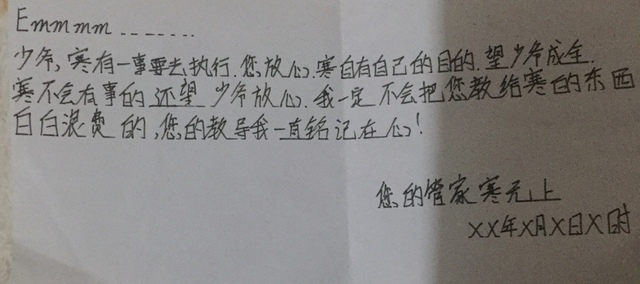 Emmmm.......
少爷,寒有一事要去执行.您放心.寒自有自己的目的.望少爷成全.
寒不会有事的还望少爷放心.我一定不会把您教给寒的东西
白白浪费的,您的教导我一直铭记在心!
您的管家寒无上
XX年X月X日X时